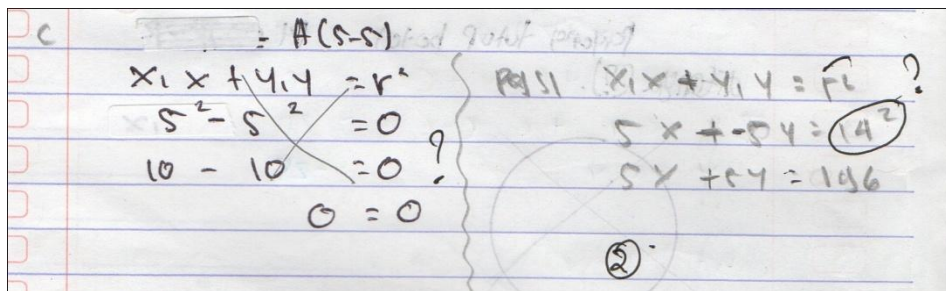 C
= A(5-5)
x₁x + y₁y = r²
5² - 5² = 0
10 - 10 = 0 ?
0 = 0
x₁x + y₁y = r² ?
5x + -5y = 14²
5x + 5y = 196
②